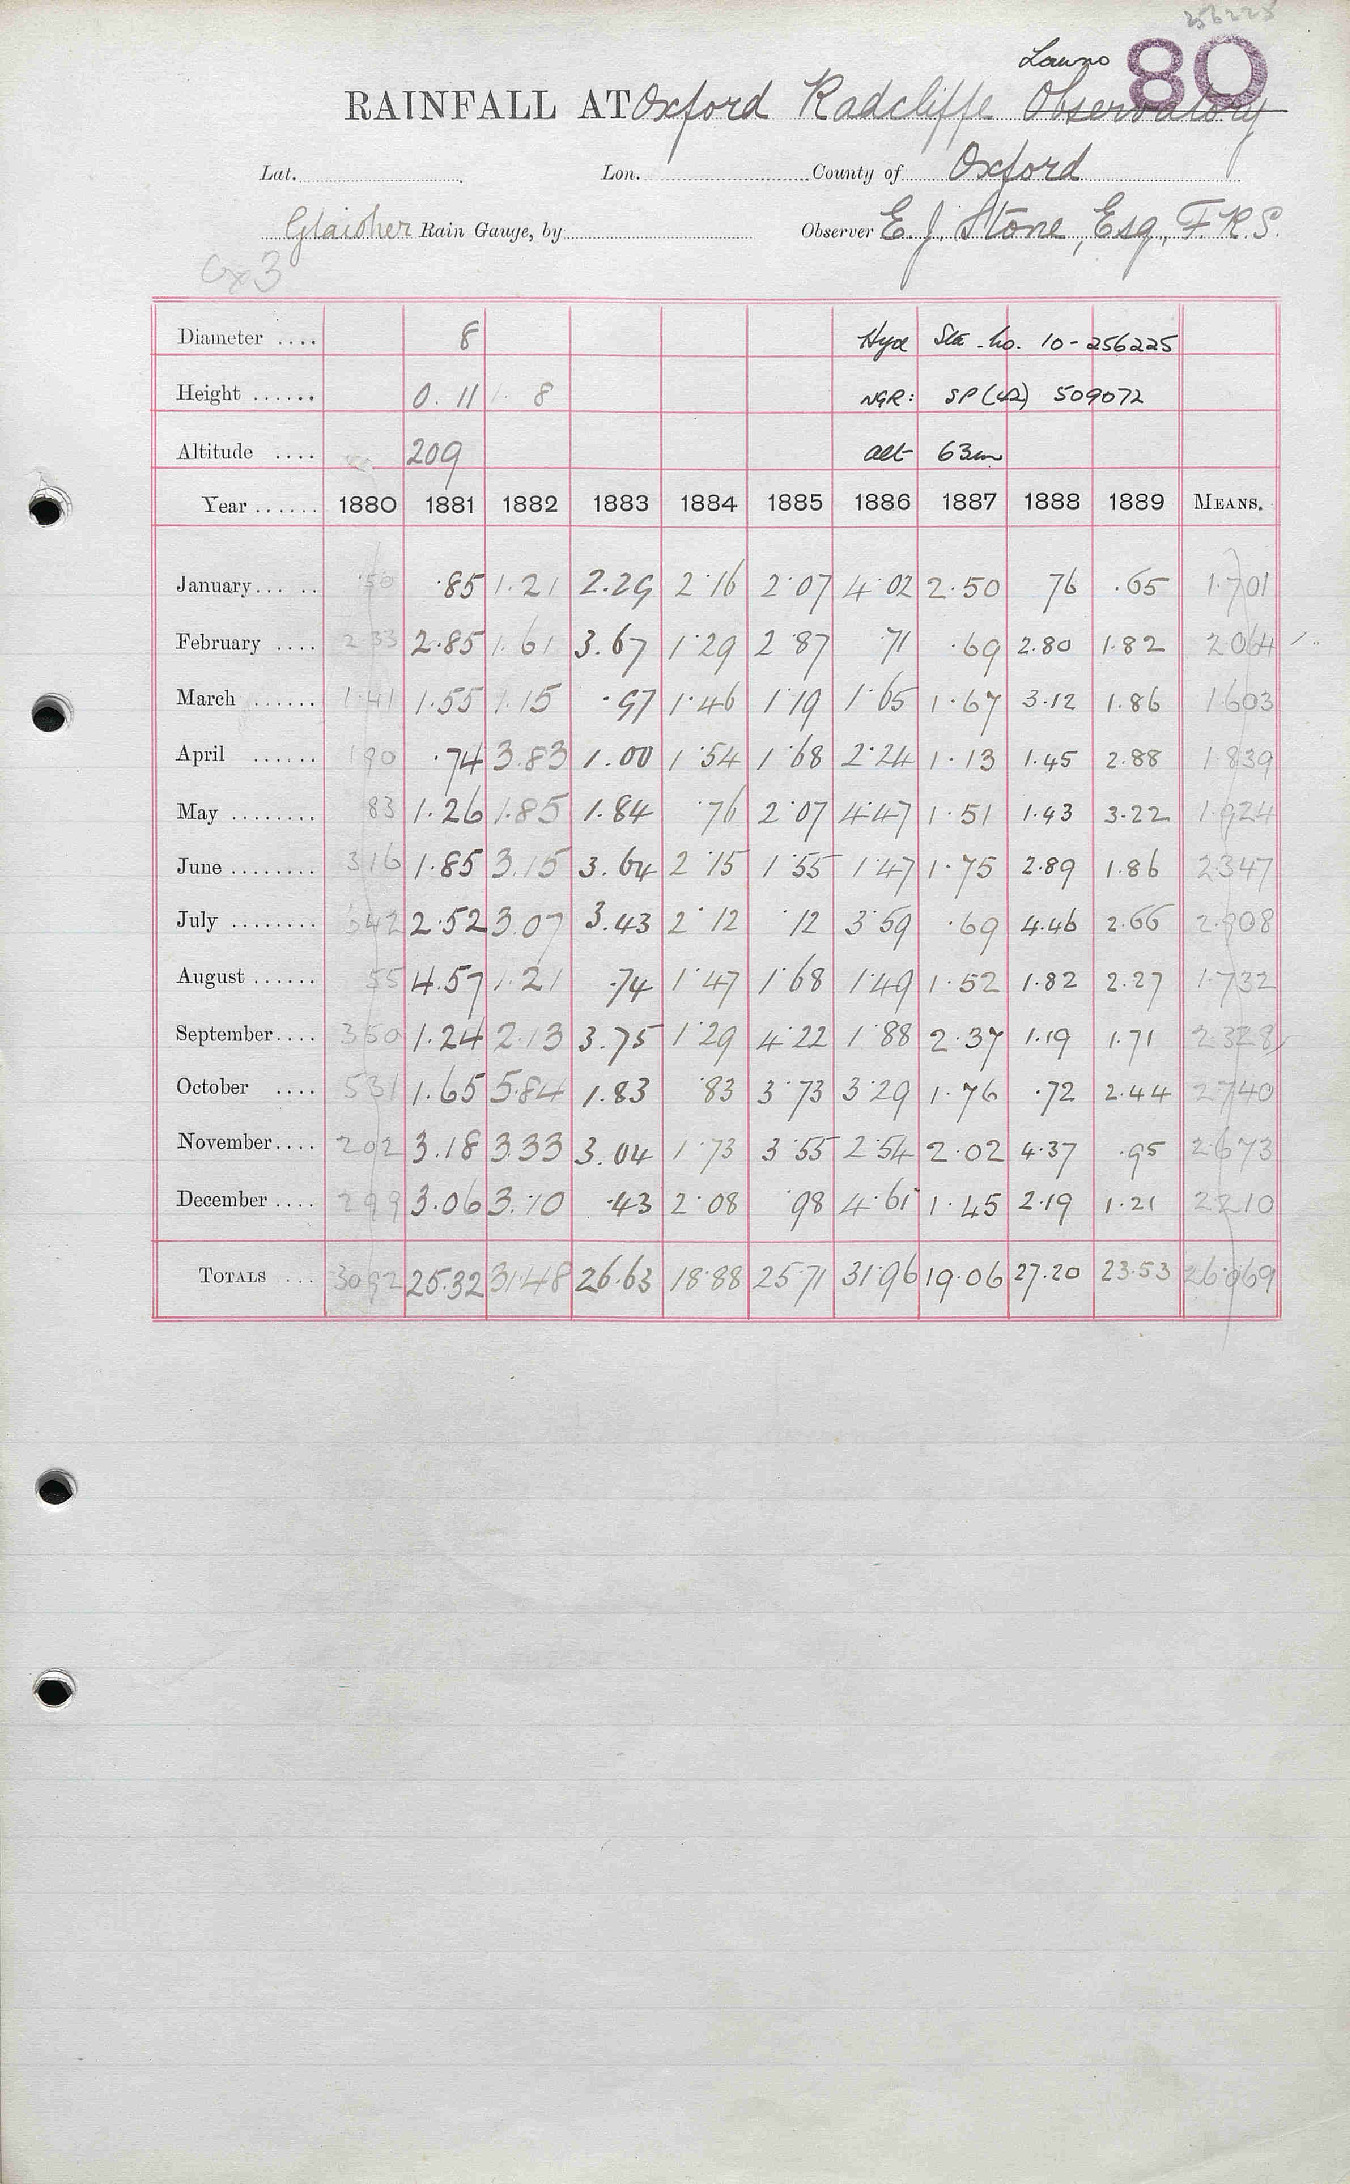 256225
Lawns 80
RAINFALL AT Oxford Radcliffe Observatory
Lat. Lon. County of Oxford
Glaisher Rain Gauge, by Observer E. J. Stone, Esq., F.R.S.
Diameter .... 8 Hyd Sta. no. 10-256225
Height ...... 0.11 1. 8 NGR: SP (42) 509072
Altitude .... 209 alt 63m
Year ...... 1880 1881 1882 1883 1884 1885 1886 1887 1888 1889 MEANS.
January... .. .50 .85 1.21 2.29 2.16 2.07 4.02 2.50 76 .65 1.701
February .... 2.33 2.85 1.61 3.67 1.29 2.87 .71 .69 2.80 1.82 2.064
March ...... 1.41 1.55 1.15 .97 1.46 1.19 1.65 1.67 3.12 1.86 1.603
April ...... 1.90 .74 3.83 1.00 1.54 1.68 2.24 1.13 1.45 2.88 1.839
May ........ 83 1.26 1.85 1.84 .76 2.07 4.47 1.51 1.43 3.22 1.924
June ........ 3.16 1.85 3.15 3.64 2.15 1.55 1.47 1.75 2.89 1.86 2.347
July ........ 6.42 2.52 3.07 3.43 2.12 .12 3.59 .69 4.46 2.66 2.908
August ...... 55 4.57 1.21 .74 1.47 1.68 1.49 1.52 1.82 2.27 1.732
September.... 3.50 1.24 2.13 3.75 1.29 4.22 1.88 2.37 1.19 1.71 2.328
October .... 5.31 1.65 5.84 1.83 .83 3.73 3.29 1.76 .72 2.44 2.740
November.... 2.02 3.18 3.33 3.04 1.73 3.55 2.54 2.02 4.37 .95 2.673
December .... 2.99 3.06 3.10 .43 2.08 .98 4.61 1.45 2.19 1.21 2.210
TOTALS ... 30.92 25.32 31.48 26.63 18.88 25.71 31.96 19.06 27.20 23.53 26.069